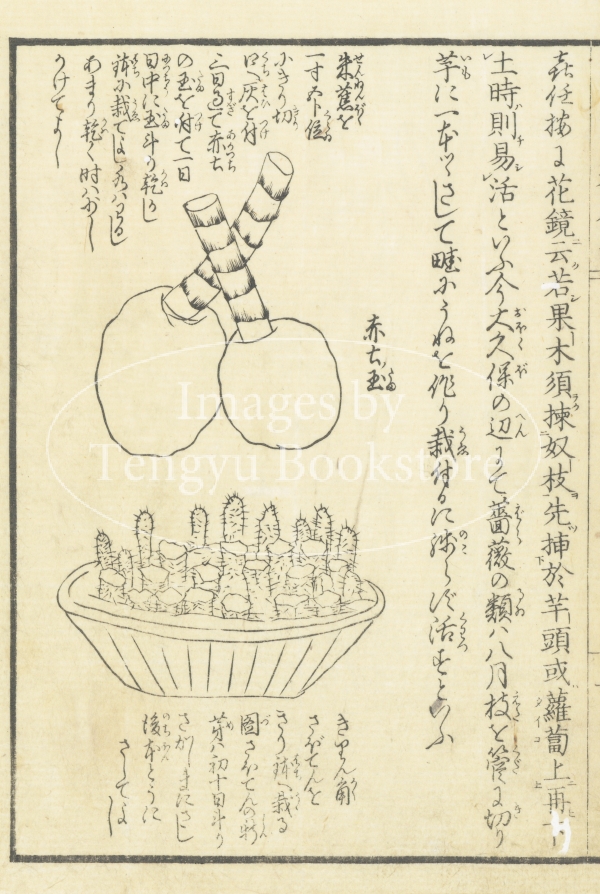 㐂任按に花鏡云若果木須揀奴枝先揷於芋頭或蘿蔔上再下
土時則易活といふ今大久保の辺にて薔薇の類ハ八月枝を管に切り
芋に一本づゝさして畦にうねを作り栽付るに残らず活すといふ
朱蕉を
一寸五分位
小きり切
口へ灰を付
三日過て赤土
の玉を付て一日
日中に玉斗り乾かし
鉢に栽てよし
あまり乾く時ハ少し
かけてよし
赤土玉
きりん角
さぼてんを
きり鉢へ栽る
圖さぼてんの新
芽ハ初十日斗り
さかしまにさし
後本とうに
さしてよし
Images by
Tengyu Bookstore